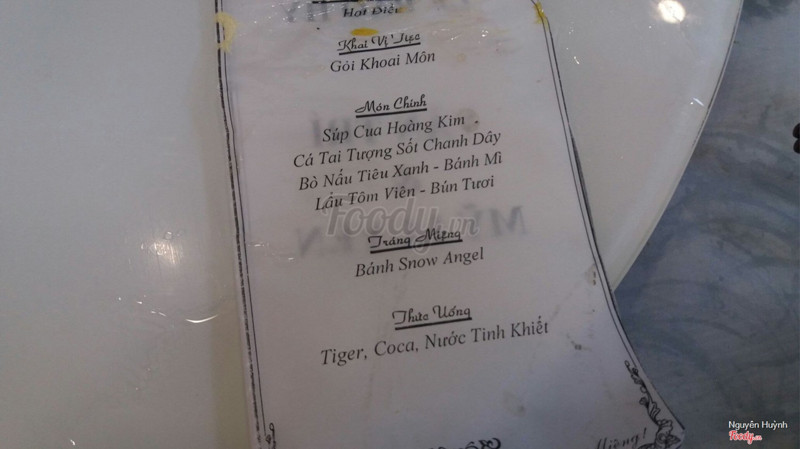 Hạt Điều
Khai Vị Tiệc
Gỏi Khoai Môn
Món Chính
Súp Cua Hoàng Kim
Cá Tai Tượng Sốt Chanh Dây
Bò Nấu Tiêu Xanh - Bánh Mì
Lẩu Tôm Viên - Bún Tươi
Foody.vn
Tráng Miệng
Bánh Snow Angel
Thức Uống
Tiger, Coca, Nước Tinh Khiết
Miệng!
Nguyễn Huỳnh
Foody.vn